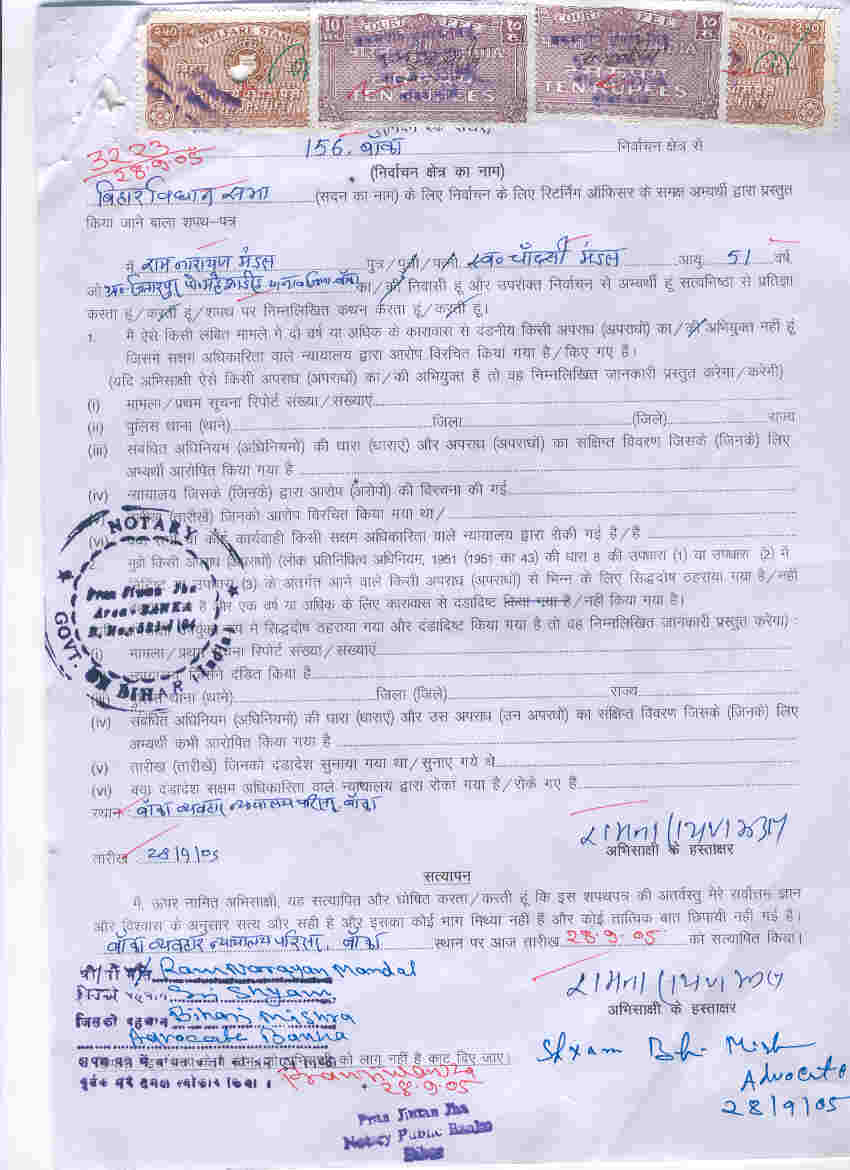 २५० WELFARE STAMP
10 COURT FEE १०
रु० INDIA रु०
TEN RUPEES
COURT FEE १०
INDIA रु०
TEN RUPEES
STAMP २५०
3223
28.9.05
156. बाँका निर्वाचन क्षेत्र से
(निर्वाचन क्षेत्र का नाम)
बिहार विधान सभा (सदन का नाम) के लिए निर्वाचन के लिए रिटर्निंग ऑफिसर के समक्ष अभ्यर्थी द्वारा प्रस्तुत
किया जाने बाला शपथ–पत्र
मैं राम नारायण मंडल पुत्र/पुत्री/पत्नी स्व० मंडल आयु 51 वर्ष
जो पो० थाना जिला बाँका का/की निवासी हूं और उपरोक्त निर्वाचन से अभ्यर्थी हूं सत्यनिष्ठा से प्रतिज्ञा
करता हूं/करती हूं/शपथ पर निम्नलिखित कथन करता हूं/करती हूं।
1. मैं ऐसे किसी लंबित मामले में दो वर्ष या अधिक के कारावास से दंडनीय किसी अपराध (अपराधों) का/की अभियुक्त नहीं हूं
जिसमें सक्षम अधिकारिता वाले न्यायालय द्वारा आरोप विरचित किया गया है/किए गए हैं।
(यदि अभिसाक्षी ऐसे किसी अपराध (अपराधों) का/की अभियुक्त है तो वह निम्नलिखित जानकारी प्रस्तुत करेगा/करेगी)
(i) मामला/प्रथम सूचना रिपोर्ट संख्या/संख्याएं
(ii) पुलिस थाना (थाने) जिला (जिले) राज्य
(iii) संबंधित अधिनियम (अधिनियमों) की धारा (धाराएं) और अपराध (अपराधों) का संक्षिप्त विवरण जिसके (जिनके) लिए
अभ्यर्थी आरोपित किया गया है
(iv) न्यायालय जिसके (जिनके) द्वारा आरोप (आरोपों) की विरचना की गई
(तारीखें) जिनको आरोप विरचित किया गया था/
(vi) कार्यवाही किसी सक्षम अधिकारिता वाले न्यायालय द्वारा रोकी गई है/हैं
मुझे किसी अपराध (अपराधों) (लोक प्रतिनिधित्व अधिनियम, 1951 (1951 का 43) की धारा 8 की उपधारा (1) या उपधारा (2) में
उपधारा (3) के अंतर्गत आने वाले किसी अपराध (अपराधों) से भिन्न के लिए सिद्धदोष ठहराया गया है/नहीं
है और एक वर्ष या अधिक के लिए कारावास से दंडादिष्ट किया गया है/नहीं किया गया है।
में सिद्धदोष ठहराया गया और दंडादिष्ट किया गया है तो वह निम्नलिखित जानकारी प्रस्तुत करेगा) :
(i) मामला/प्रथम सूचना रिपोर्ट संख्या/संख्याएं
दंडित किया है
थाना (थाने) जिला (जिले) राज्य
(iv) संबंधित अधिनियम (अधिनियमों) की धारा (धाराएं) और उस अपराध (उन अपराधों) का संक्षिप्त विवरण जिसके (जिनके) लिए
अभ्यर्थी कभी आरोपित किया गया है
(v) तारीख (तारीखें) जिनको दंडादेश सुनाया गया था/सुनाए गये थे
(vi) क्या दंडादेश सक्षम अधिकारिता वाले न्यायालय द्वारा रोका गया है/रोके गए हैं
NOTARY
Pran Jiwan Jha
Area - BANKA
GOVT. OF BIHAR (India)
स्थान बाँका व्यवहार न्यायालय परिसर, बाँका
रामनारायण मंडल
अभिसाक्षी के हस्ताक्षर
तारीख 28/9/05
सत्यापन
मैं, ऊपर नामित अभिसाक्षी, यह सत्यापित और घोषित करता/करती हूं कि इस शपथपत्र की अंतर्वस्तु मेरे सर्वोत्तम ज्ञान
और विश्वास के अनुसार सत्य और सही है और इसका कोई भाग मिथ्या नहीं है और कोई तात्विक बात छिपायी नहीं गई है।
बाँका व्यवहार न्यायालय परिसर, बाँका स्थान पर आज तारीख 28.9.05 को सत्यापित किया।
Ram Narayan Mandal
रामनारायण मंडल
Sri Shyam
अभिसाक्षी के हस्ताक्षर
जिसकी पहचान Bihari Mishra
Advocate Banka
Shyam Bh. Mish
को लागू नहीं है काट दिए जाए।
Advocate
28.9.05
28/9/05
Pran Jiwan Jha
Notary Public Banka
Bihar